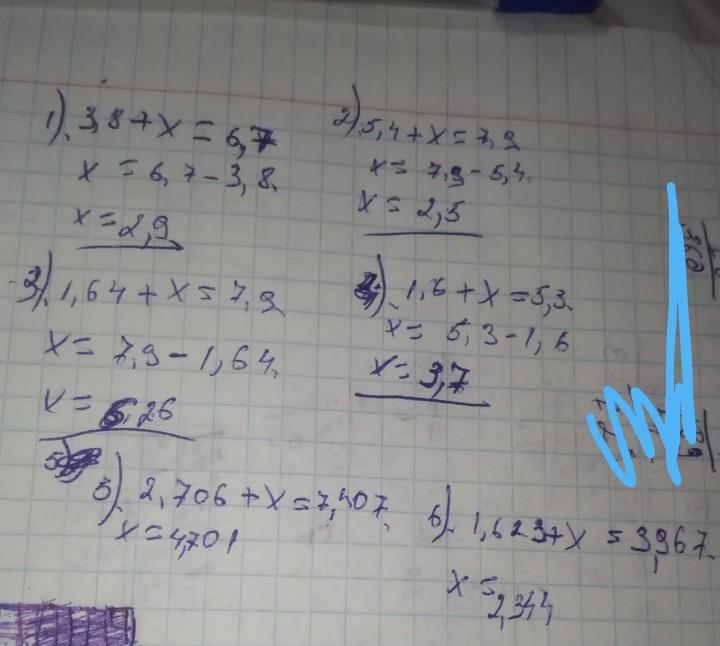 1). 3,8+x=6,7
x=6,7-3,8
x=2,9
2). 5,4+x=7,9
x=7,9-5,4
x=2,5
3). 1,64+x=7,9
x=7,9-1,64
x=6,26
4). 1,6+x=5,3
x=5,3-1,6
x=3,7
5). 2,706+x=7,407
x=4,701
6). 1,623+x=3,967
x=2,344